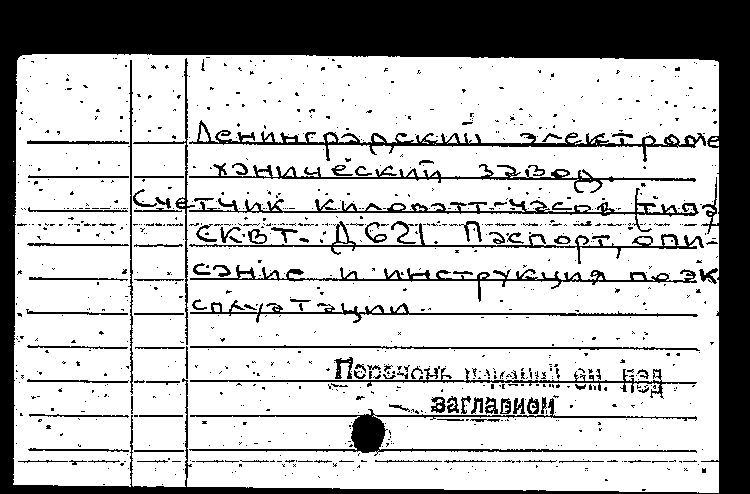 Ленинградский электроме
ханический завод.
Счетчик киловатт-часов (типа
СКВТ-Д621. Паспорт, опи-
сание и инструкция по эк
сплуатации
Перечень изданий см. под
заглавием